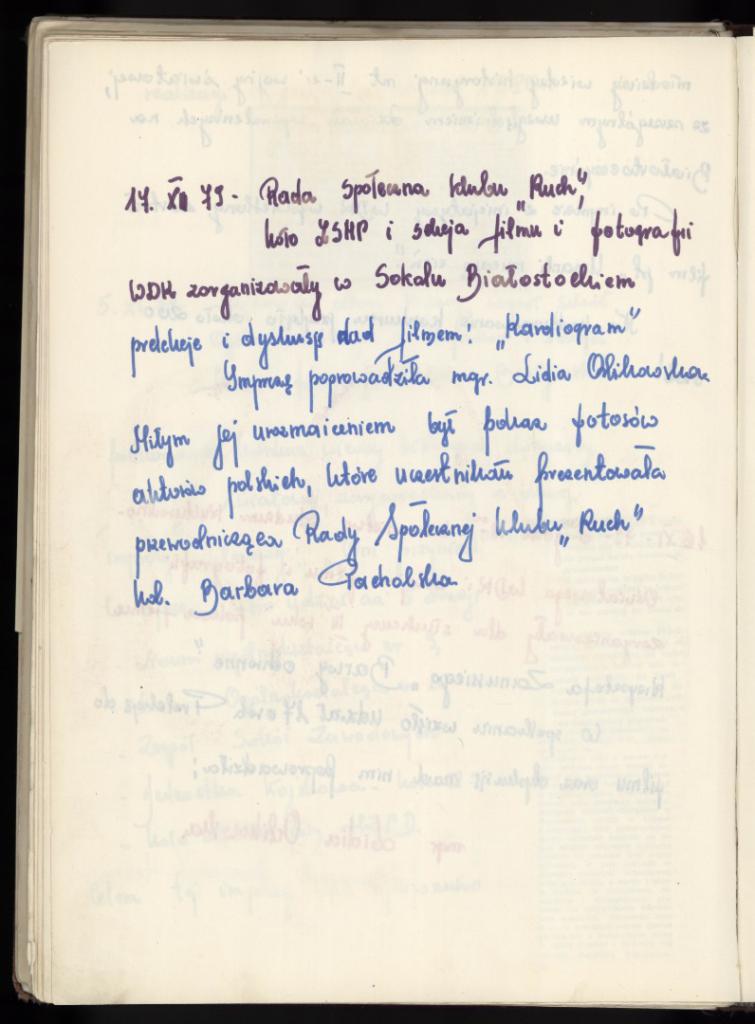 17. XII 79 - Rada Społeczna Klubu „Ruch”,
koło ZSMP i sekcja filmu i fotografii
WDK zorganizowały w Sokołu Białostockiem
prelekcje i dyskusję nad filmem: „Kardiogram”
Imprezę poprowadziła mgr. Lidia Olikowska
Miłym jej urozmaiceniem był pokaz fotosów
aktorów polskich, które uczestnikom prezentowała
przewodnicząca Rady Społecznej Klubu „Ruch”
kol. Barbara Pacholska